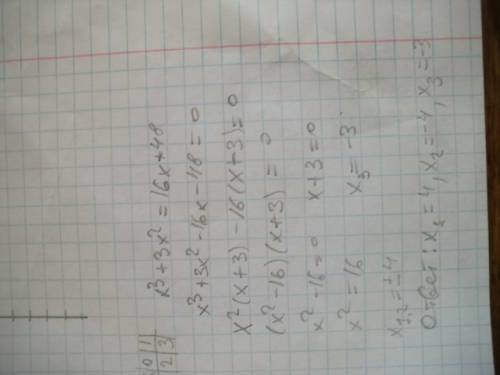 0 1
2 3
x³+3x²=16x+48
x³+3x²-16x-48=0
x²(x+3)-16(x+3)=0
(x²-16)(x+3)=0
x²-16=0 x+3=0
x²=16 x₃=-3
x₁,₂=±4
Ответ: x₁=4, x₂=-4, x₃=-3